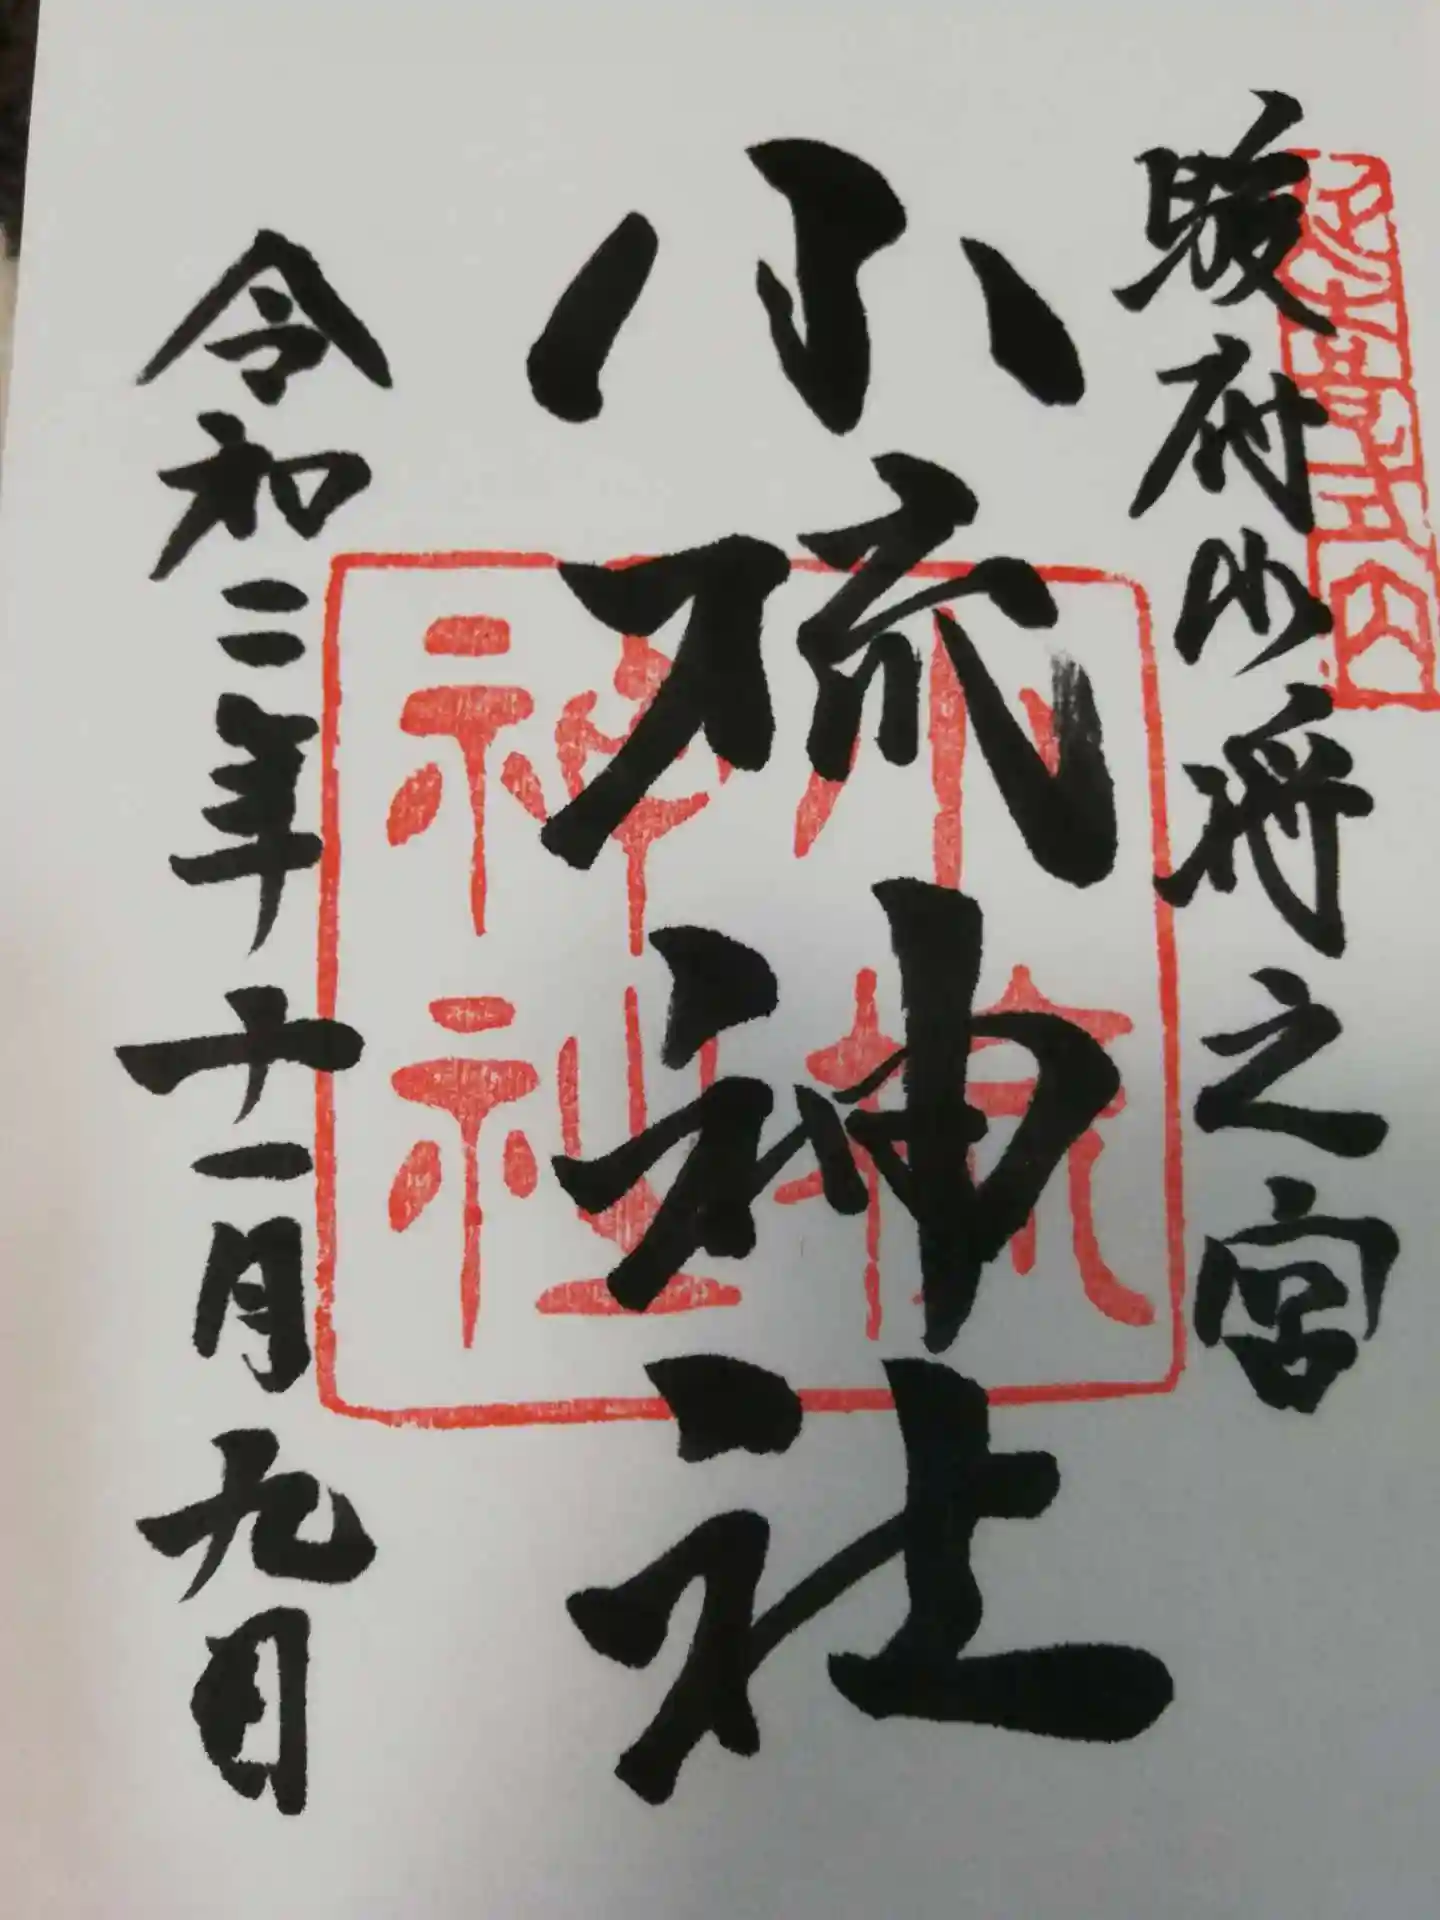 延喜式内
駿府少将之宮
小梳神社
小梳
神社
令和二年十一月九日